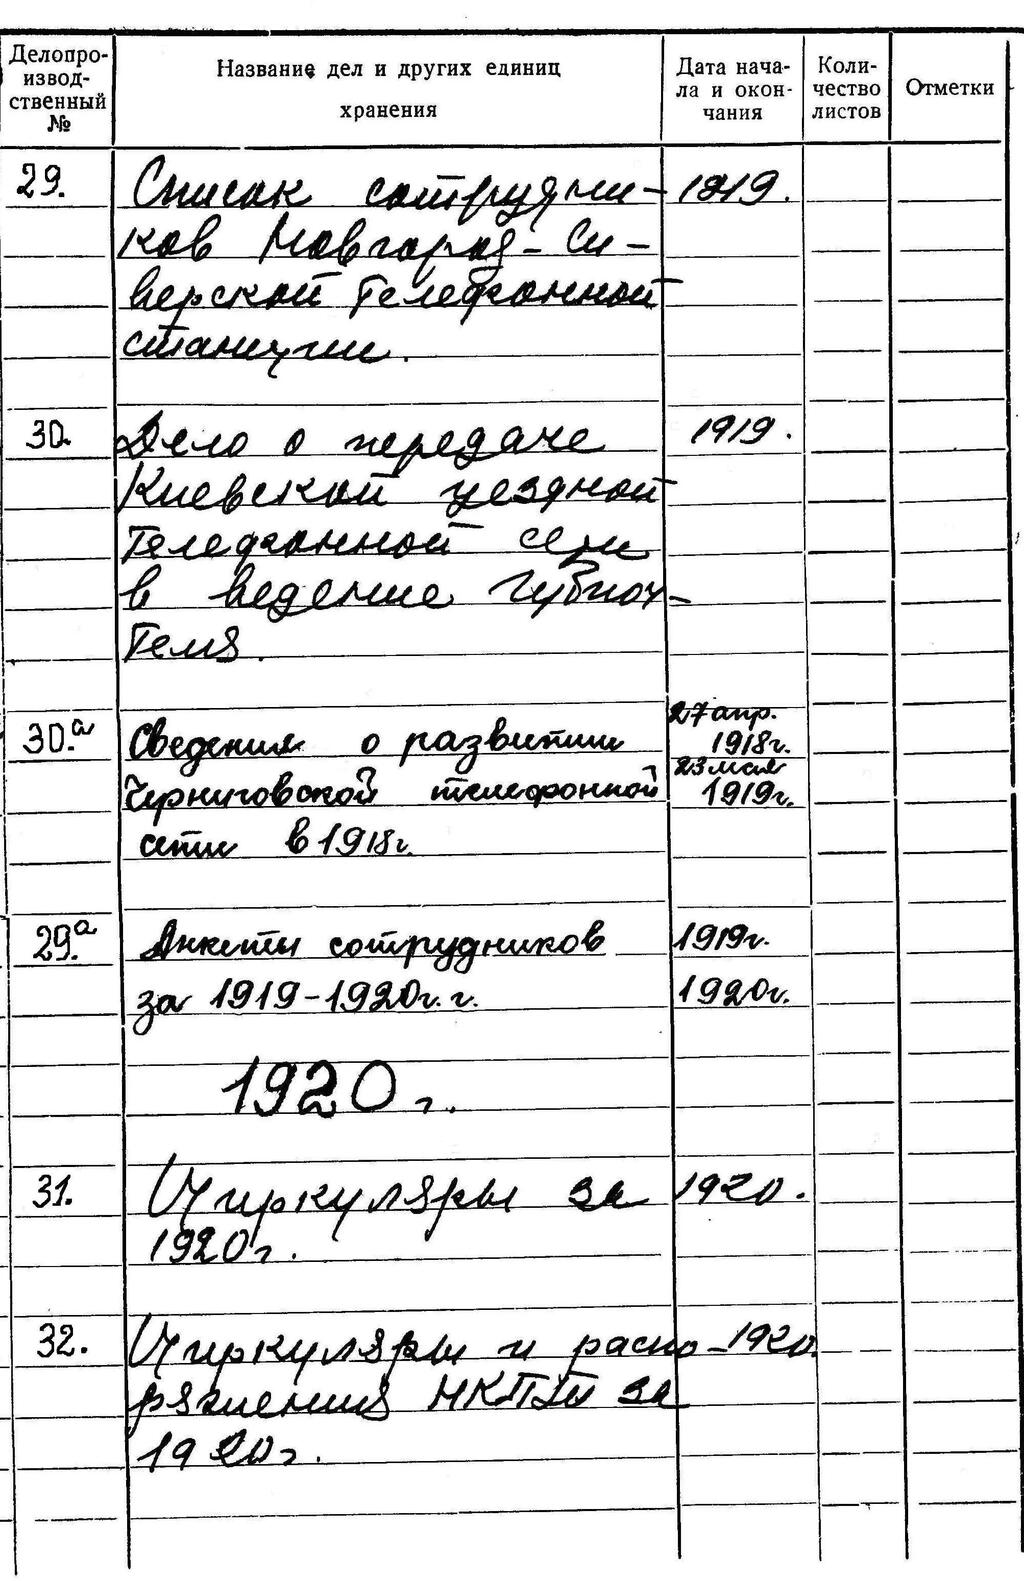 Делопро-
извод-
ственный
№
Название дел и других единиц
хранения
Дата нача-
ла и окон-
чания
Коли-
чество
листов
Отметки
29. Список сотрудни- 1919.
ков Новгород-Си-
верской телефонной
станции.
30. Дело о передаче 1919.
Киевской уездной
телефонной сети
в ведение Губпоч-
теля.
30.а Сведения о развитии 27 апр. 1918г.
Черниговской телефонной 23 мая 1919г.
сети в 1918г.
29.а Анкеты сотрудников 1919г.
за 1919-1920г.г. 1920г.
1920г.
31. Циркуляры за 1920.
1920г.
32. Циркуляры и распо- 1920.
ряжения НКПТ за
1920г.